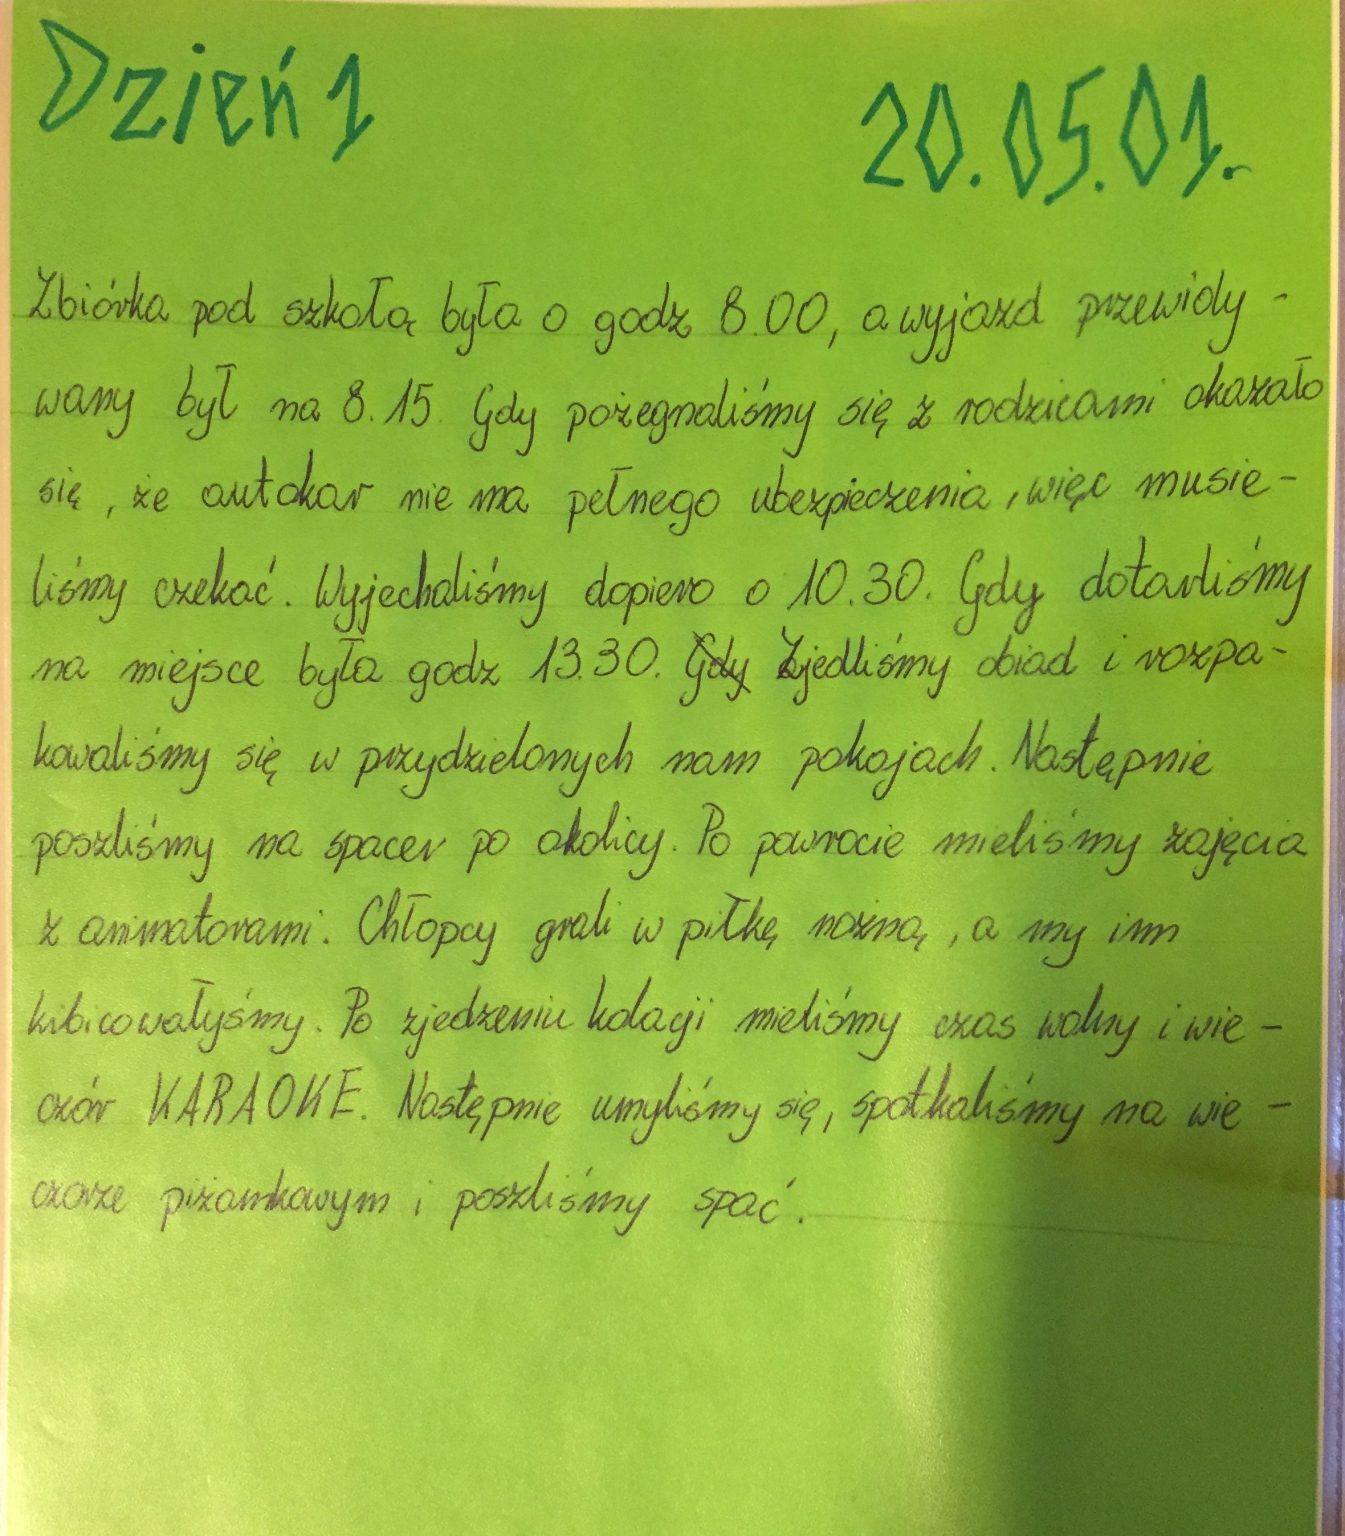 Dzień 1
20.05.01.
Zbiórka pod szkołą była o godz 8.00, a wyjazd przewidy-
wany był na 8.15. Gdy pożegnaliśmy się z rodzicami okazało
się, że autokar nie ma pełnego ubezpieczenia, więc musie-
liśmy czekać. Wyjechaliśmy dopiero o 10.30. Gdy dotarliśmy
na miejsce była godz 13.30. Gdy Zjedliśmy obiad i rozpa-
kowaliśmy się w przydzielonych nam pokojach. Następnie
poszliśmy na spacer po okolicy. Po powrocie mieliśmy zajęcia
z animatorami. Chłopcy grali w piłkę nożną, a my im
kibicowałyśmy. Po zjedzeniu kolacji mieliśmy czas wolny i wie-
czór KARAOKE. Następnie umyliśmy się, spotkaliśmy na wie-
czorze piżamkowym i poszliśmy spać.